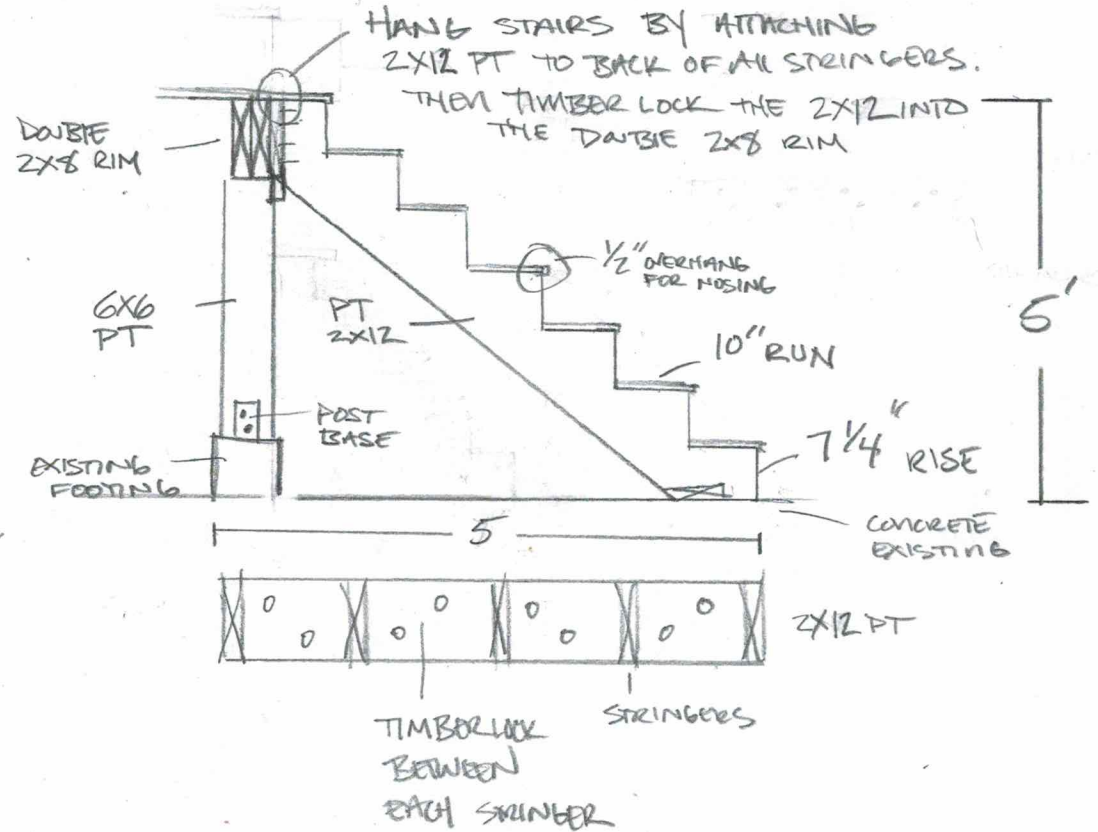 HANG STAIRS BY ATTACHING
2X12 PT TO BACK OF All STRINGERS.
THEN TIMBER LOCK THE 2X12 INTO
THE DOUBLE 2X8 RIM
DOUBLE
2X8 RIM
1/2" OVERHANG
FOR NOSING
5'
6X6
PT
PT
2X12
10" RUN
POST
BASE
7 1/4" RISE
EXISTING
FOOTING
CONCRETE
EXISTING
5
2X12 PT
TIMBERLOCK
BETWEEN
EACH STRINGER
STRINGERS